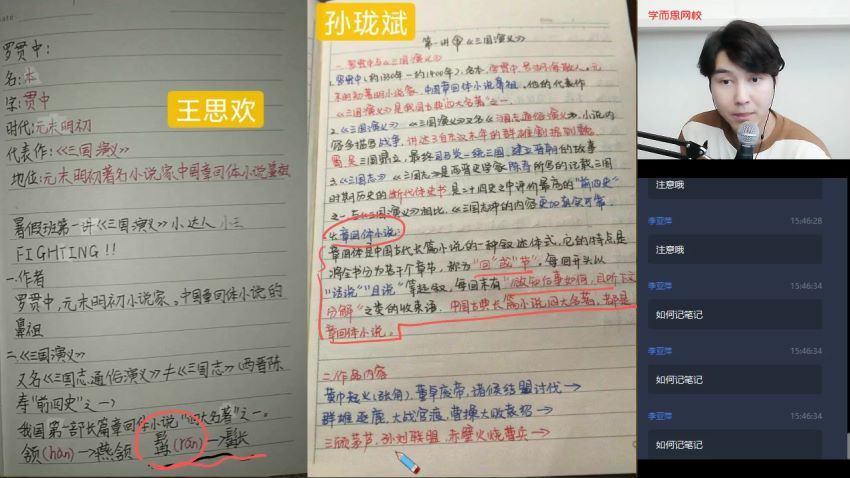 王思欢
罗贯中:
名:本
字:贯中
时代:元末明初
代表作:《三国演义》
地位:元末明初著名小说家,中国章回体小说鼻祖
暑假班第一讲《三国演义》小达人
FIGHTING!!
一.作者
罗贯中,元末明初小说家。中国章回体小说的
鼻祖
二.《三国演义》
又名《三国志通俗演义》≠《三国志》(西晋陈
寿"前四史"之一)
我国第一部长篇章回体小说"四大名著"之一。
颔(hàn)→燕颔 髯(rán)→髯长
孙珑斌
第一讲 《三国演义》
一.罗贯中与《三国演义》
1.罗贯中(约1330年—约1400年),名本,字贯中,号湖海散人。元
末明初著名小说家,中国章回体小说鼻祖,他的代表作
《三国演义》是我国古典四大名著之一。
2.《三国演义》:《三国演义》又名《三国志通俗演义》,小说内
容多描写战争,讲述了自东汉末年的群雄割据到魏
蜀,吴三国鼎立,最终司马炎一统三国,建立晋朝的故事
3.《三国志》:《三国志》是西晋史学家陈寿所写的记载三国
时期历史的断代体史书是二十四史之中评价最高的"前四史"
之一与《三国演义》相比,《三国志》中的内容更加真实可靠.
4.章回体小说:
章回体是中国古代长篇小说的一种叙述体式,它的特点是
将全书分为若干个章节,称为"回"或"节",每回开头以
"话说""且说"等起叙,每回末有"欲知后事如何,且听下文
分解"之类的收束语.中国古典长篇小说四大名著,都是
章回体小说。
二.作品内容
黄巾起义(张角),董卓废帝,诸侯结盟讨伐→
群雄逐鹿,大战官渡,曹操大败袁绍→
三顾茅庐,孙刘联盟,赤壁火烧曹兵→
学而思网校
注意哦
李亚萍 15:46:28
注意哦
李亚萍 15:46:34
如何记笔记
李亚萍 15:46:34
如何记笔记
李亚萍 15:46:34
如何记笔记